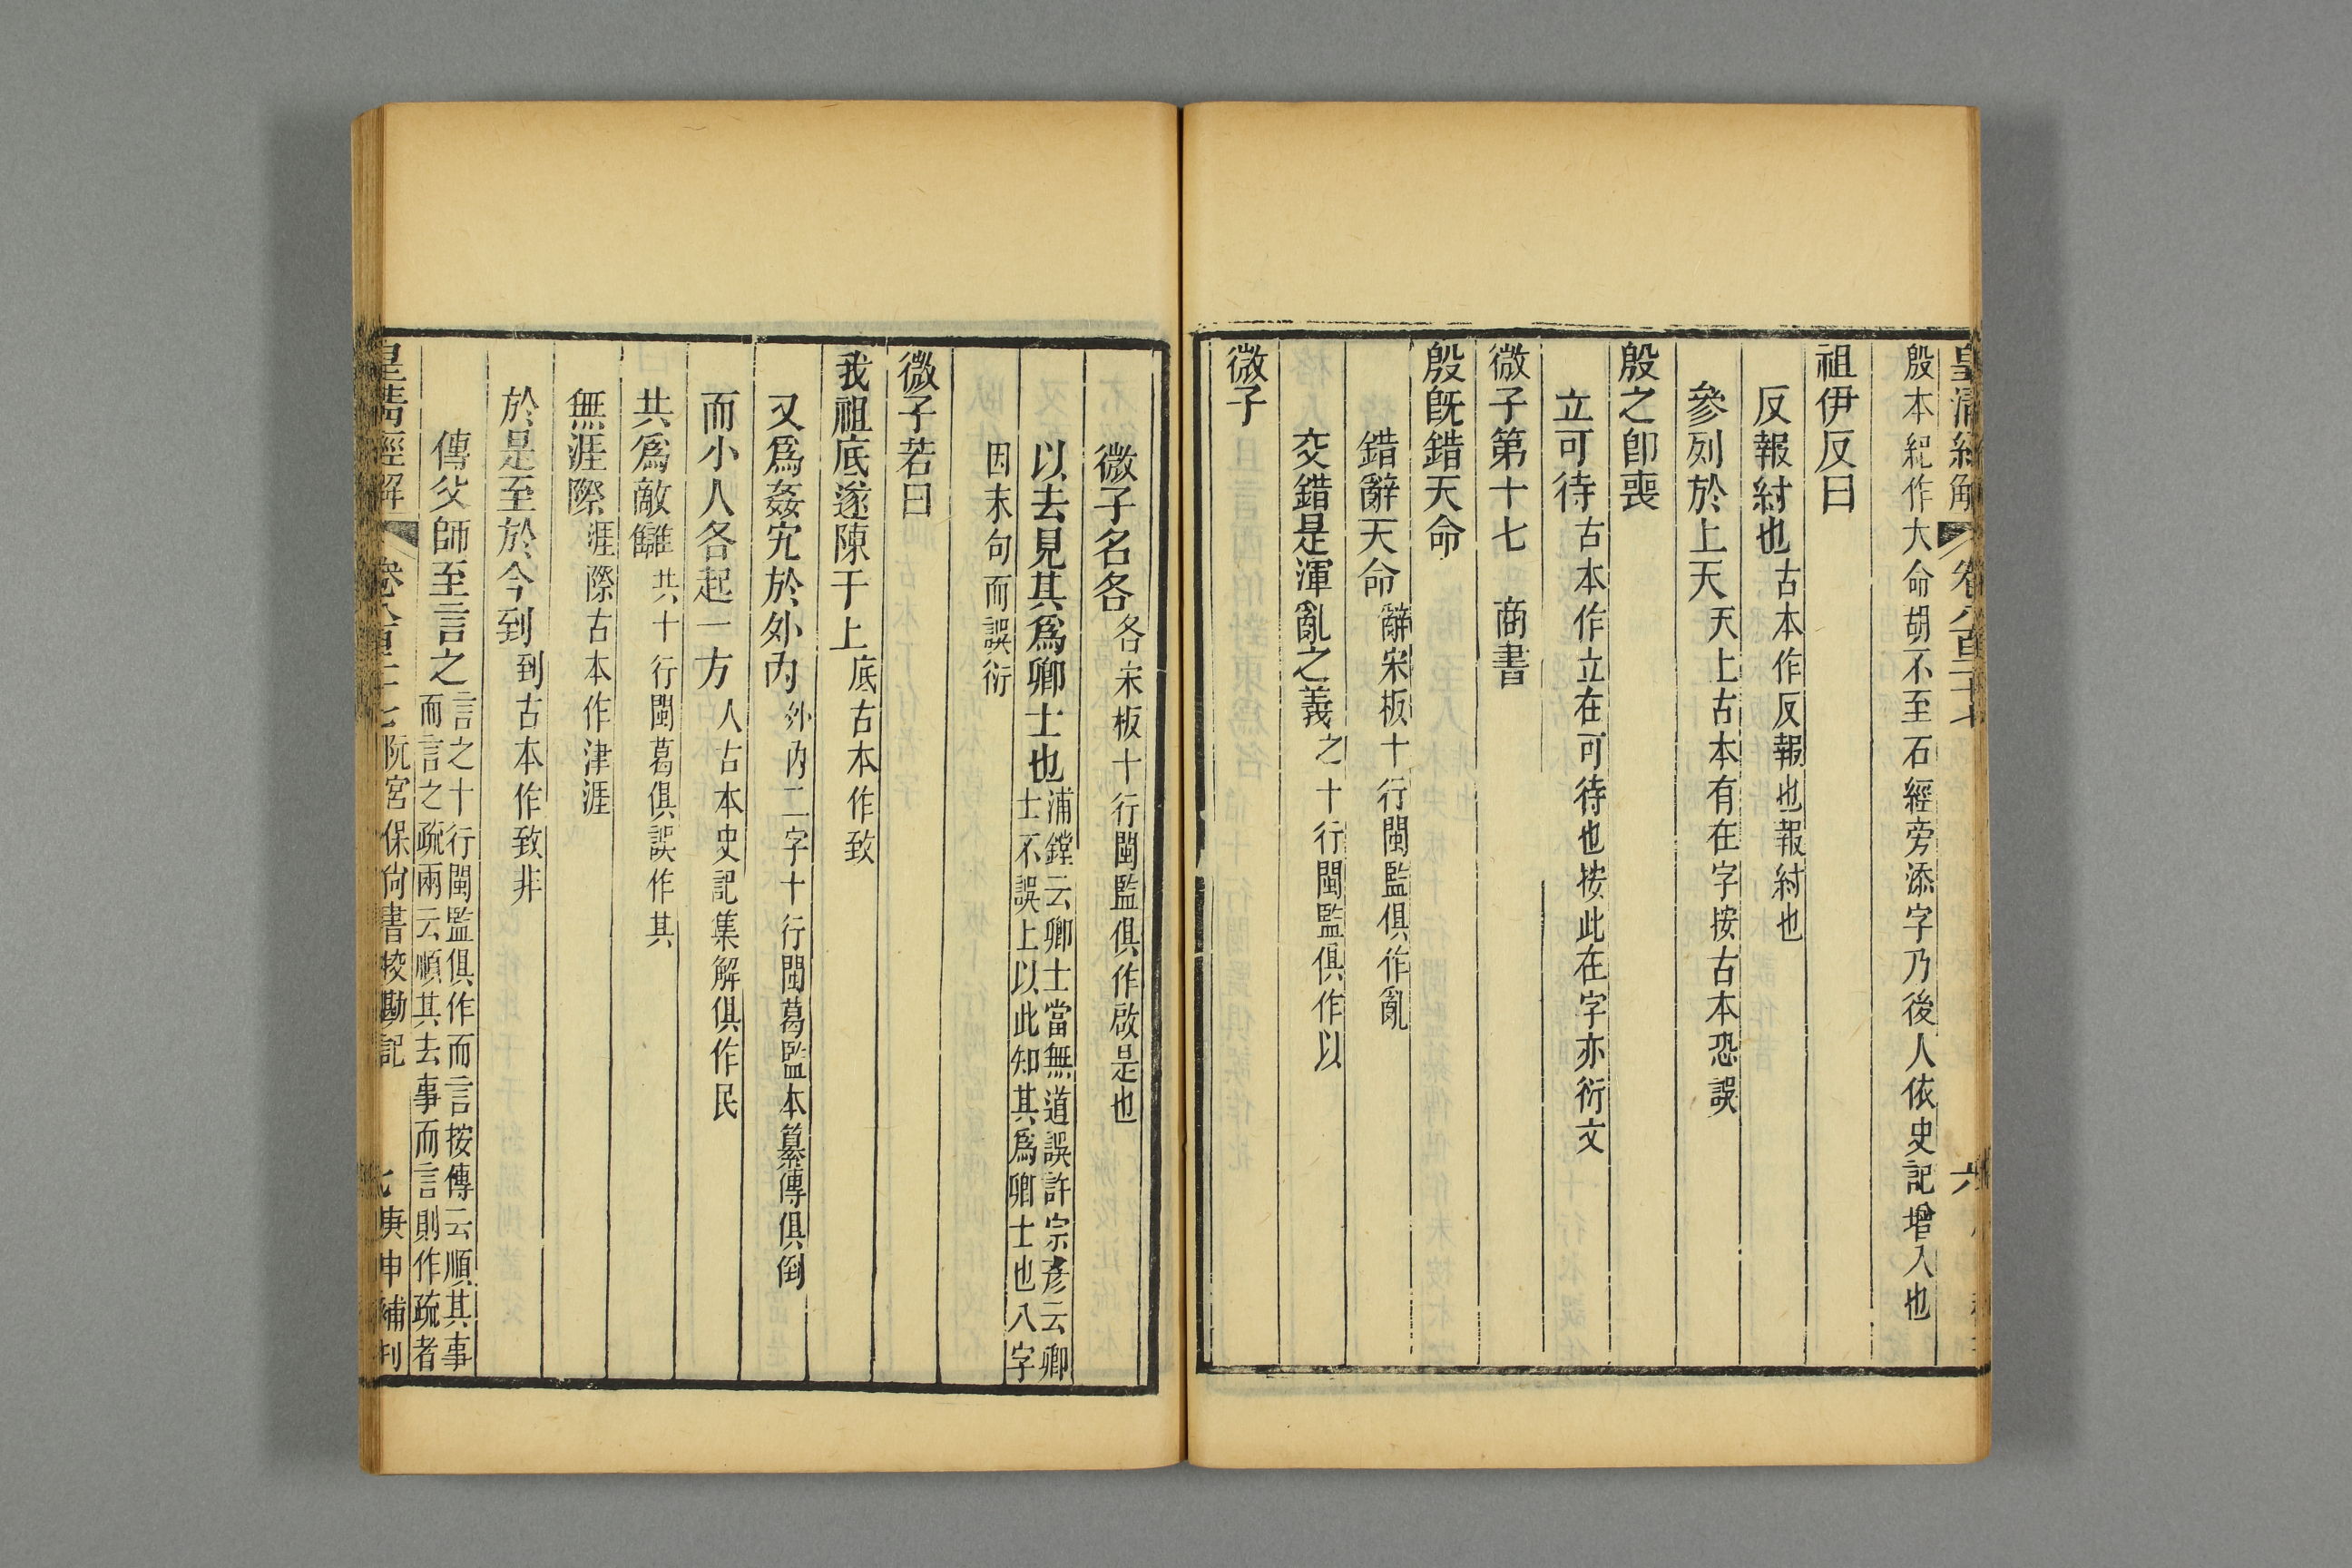 皇清經解 卷八百二十七 六
殷本紀作大命胡不至石經旁添字乃後人依史記增入也
祖伊反曰
反報紂也古本作反報也報紂也
參列於上天天上古本有在字按古本恐誤
殷之卽喪
立可待古本作立在可待也按此在字亦衍文
微子第十七 商書
殷旣錯天命
錯辭天命辭宋板十行閩監俱作亂
交錯是渾亂之義之十行閩監俱作以
微子
微子名各各宋板十行閩監俱作啟是也
以去見其爲卿士也浦鏜云卿士當無道誤許宗彥云卿
士不誤上以此知其爲卿士也八字
因末句而誤衍
微子若曰
我祖底遂陳于上底古本作致
又爲姦宄於外內外內二字十行閩葛監本纂傳俱倒
而小人各起一方人古本史記集解俱作民
共爲敵讎共十行閩葛俱誤作其
無涯際涯際古本作津涯
於是至於今到到古本作致非
傳父師至言之言之十行閩監俱作而言按傳云順其事
而言之疏兩云順其去事而言則作疏者
皇清經解 卷八百二十七 阮宮保尙書挍勘記 七 庚申補刊